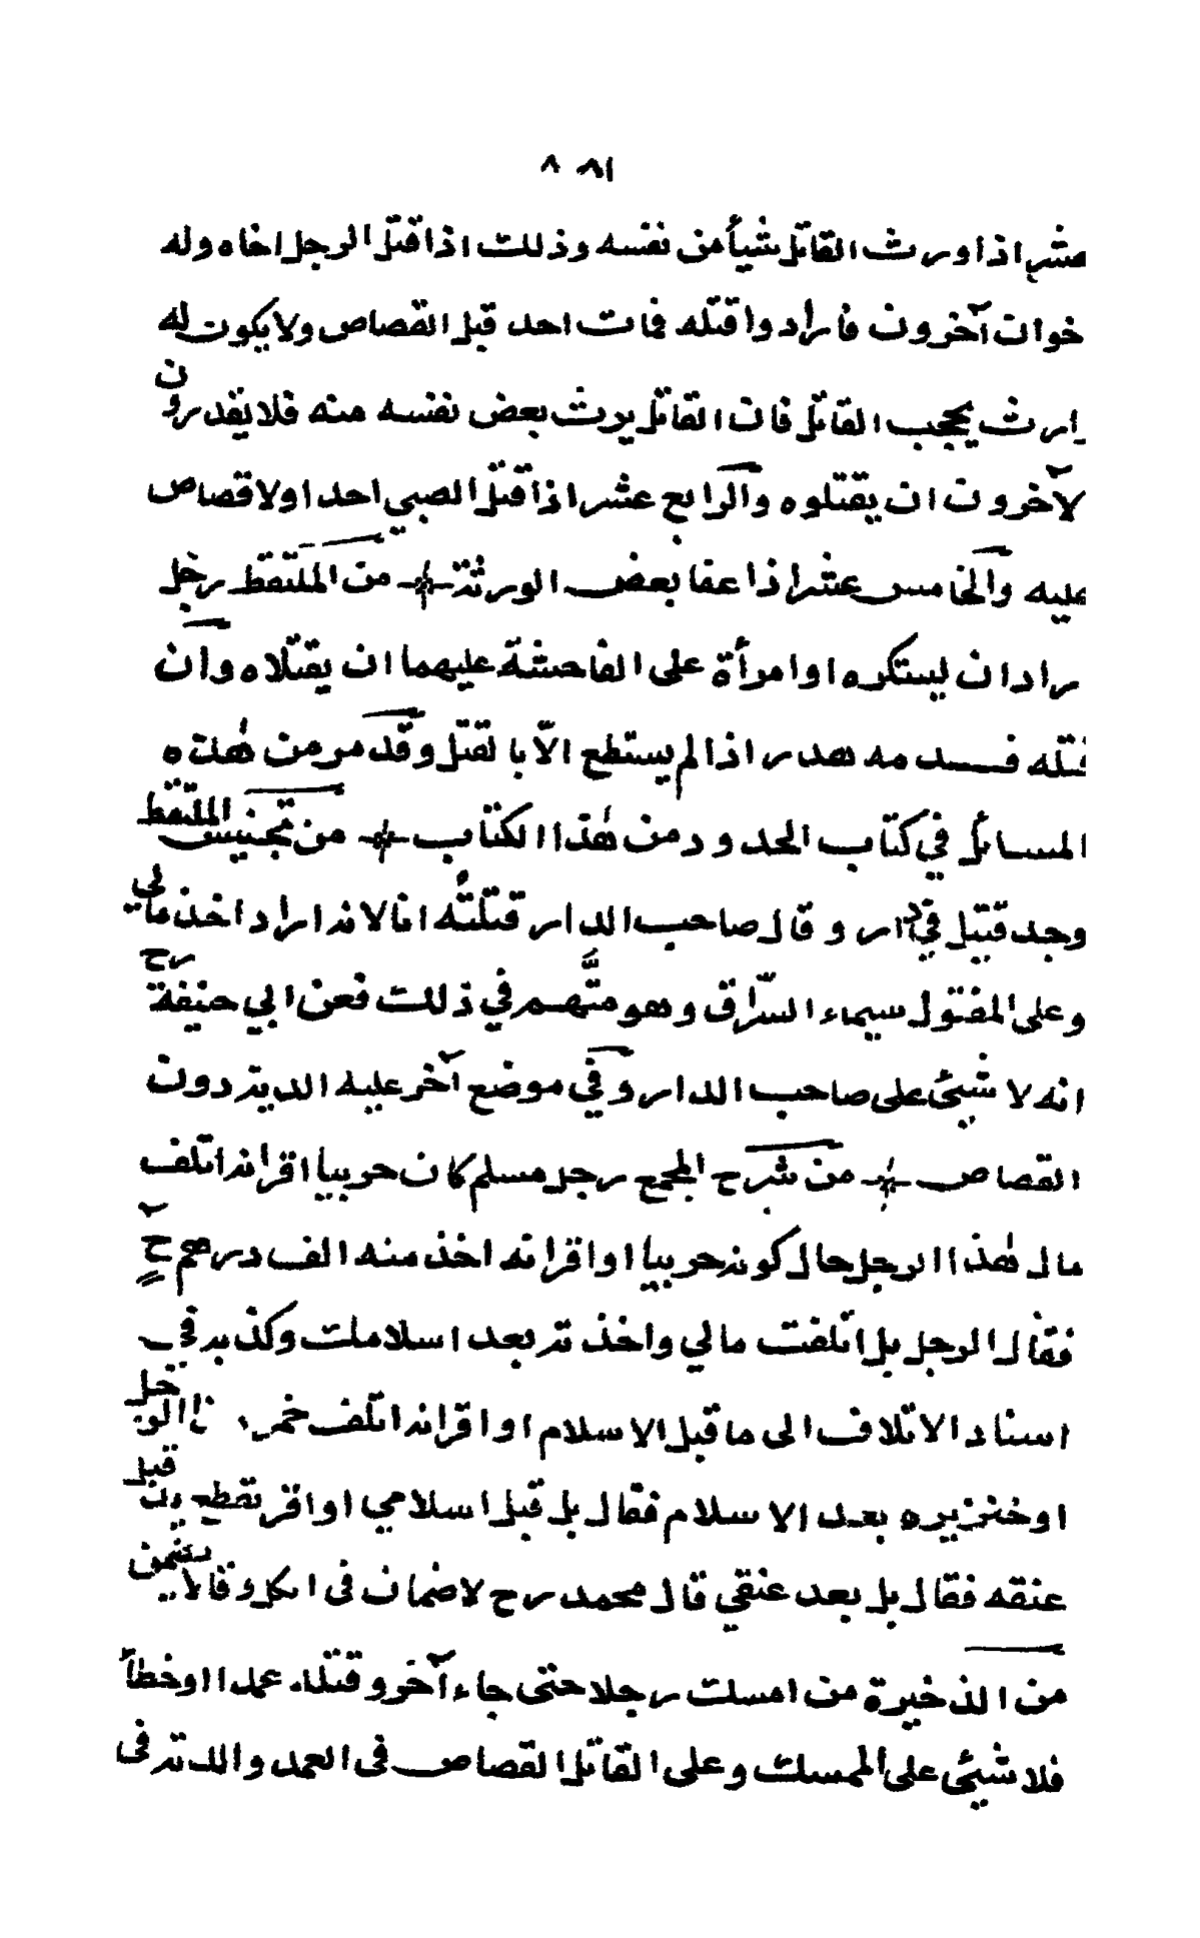 ١٨٨ ٨
عشر اذا ورث القاتل شيأ من نفسه وذلك اذا قتل الرجل اخاه وله
خوان آخرون فارادوا قتله فمات احد قبل القصاص ولا يكون له
وارث يحجب القاتل فان القاتل يرث بعض نفسه منه فلا يقدرون
لآخرون ان يقتلوه والرابع عشر اذا قتل الصبي احدا ولا قصاص
عليه والخامس عشر اذا عفا بعض الورثة من الملتقط رجل
راد ان ليستكره او امرأة على الفاحشة عليهما ان يقتلاه وان
قتله فدمه هدر اذا لم يستطع الّا بالقتل وقد مر من هذه
المسائل في كتاب الحدود من هذا الكتاب من تجنيس الملتقط
وجد قتيل في دار وقال صاحب الدار قتلته انا لانه اراد اخذ مالي
وعلى المقتول سيماء السرّاق وهو متّهم في ذلك فعن ابي حنيفة رح
انه لا شيئ على صاحب الدار وفي موضع آخر عليه الدية دون
القصاص من شرح المجمع رجل مسلم كان حربيا اقر انه اتلف
مال هذا الرجل حال كونه حربيا او اقر انه اخذ منه الف درهم ح
فقال الرجل بل اتلفت مالي واخذته بعد اسلامك وكذبه في
اسناد الاتلاف الى ما قبل الاسلام او اقر انه اتلف خمر الرجل
او خنزيره بعد الاسلام فقال بل قبل اسلامي او اقر بقطع يده قبل
عتقه فقال بل بعد عتقي قال محمد رح لا ضمان فى الكل وقالا يضمن
من الذخيرة من امسك رجلا حتى جاء آخر وقتله عمدا او خطأ
فلا شيئ على الممسك وعلى القاتل القصاص فى العمد والدية فى